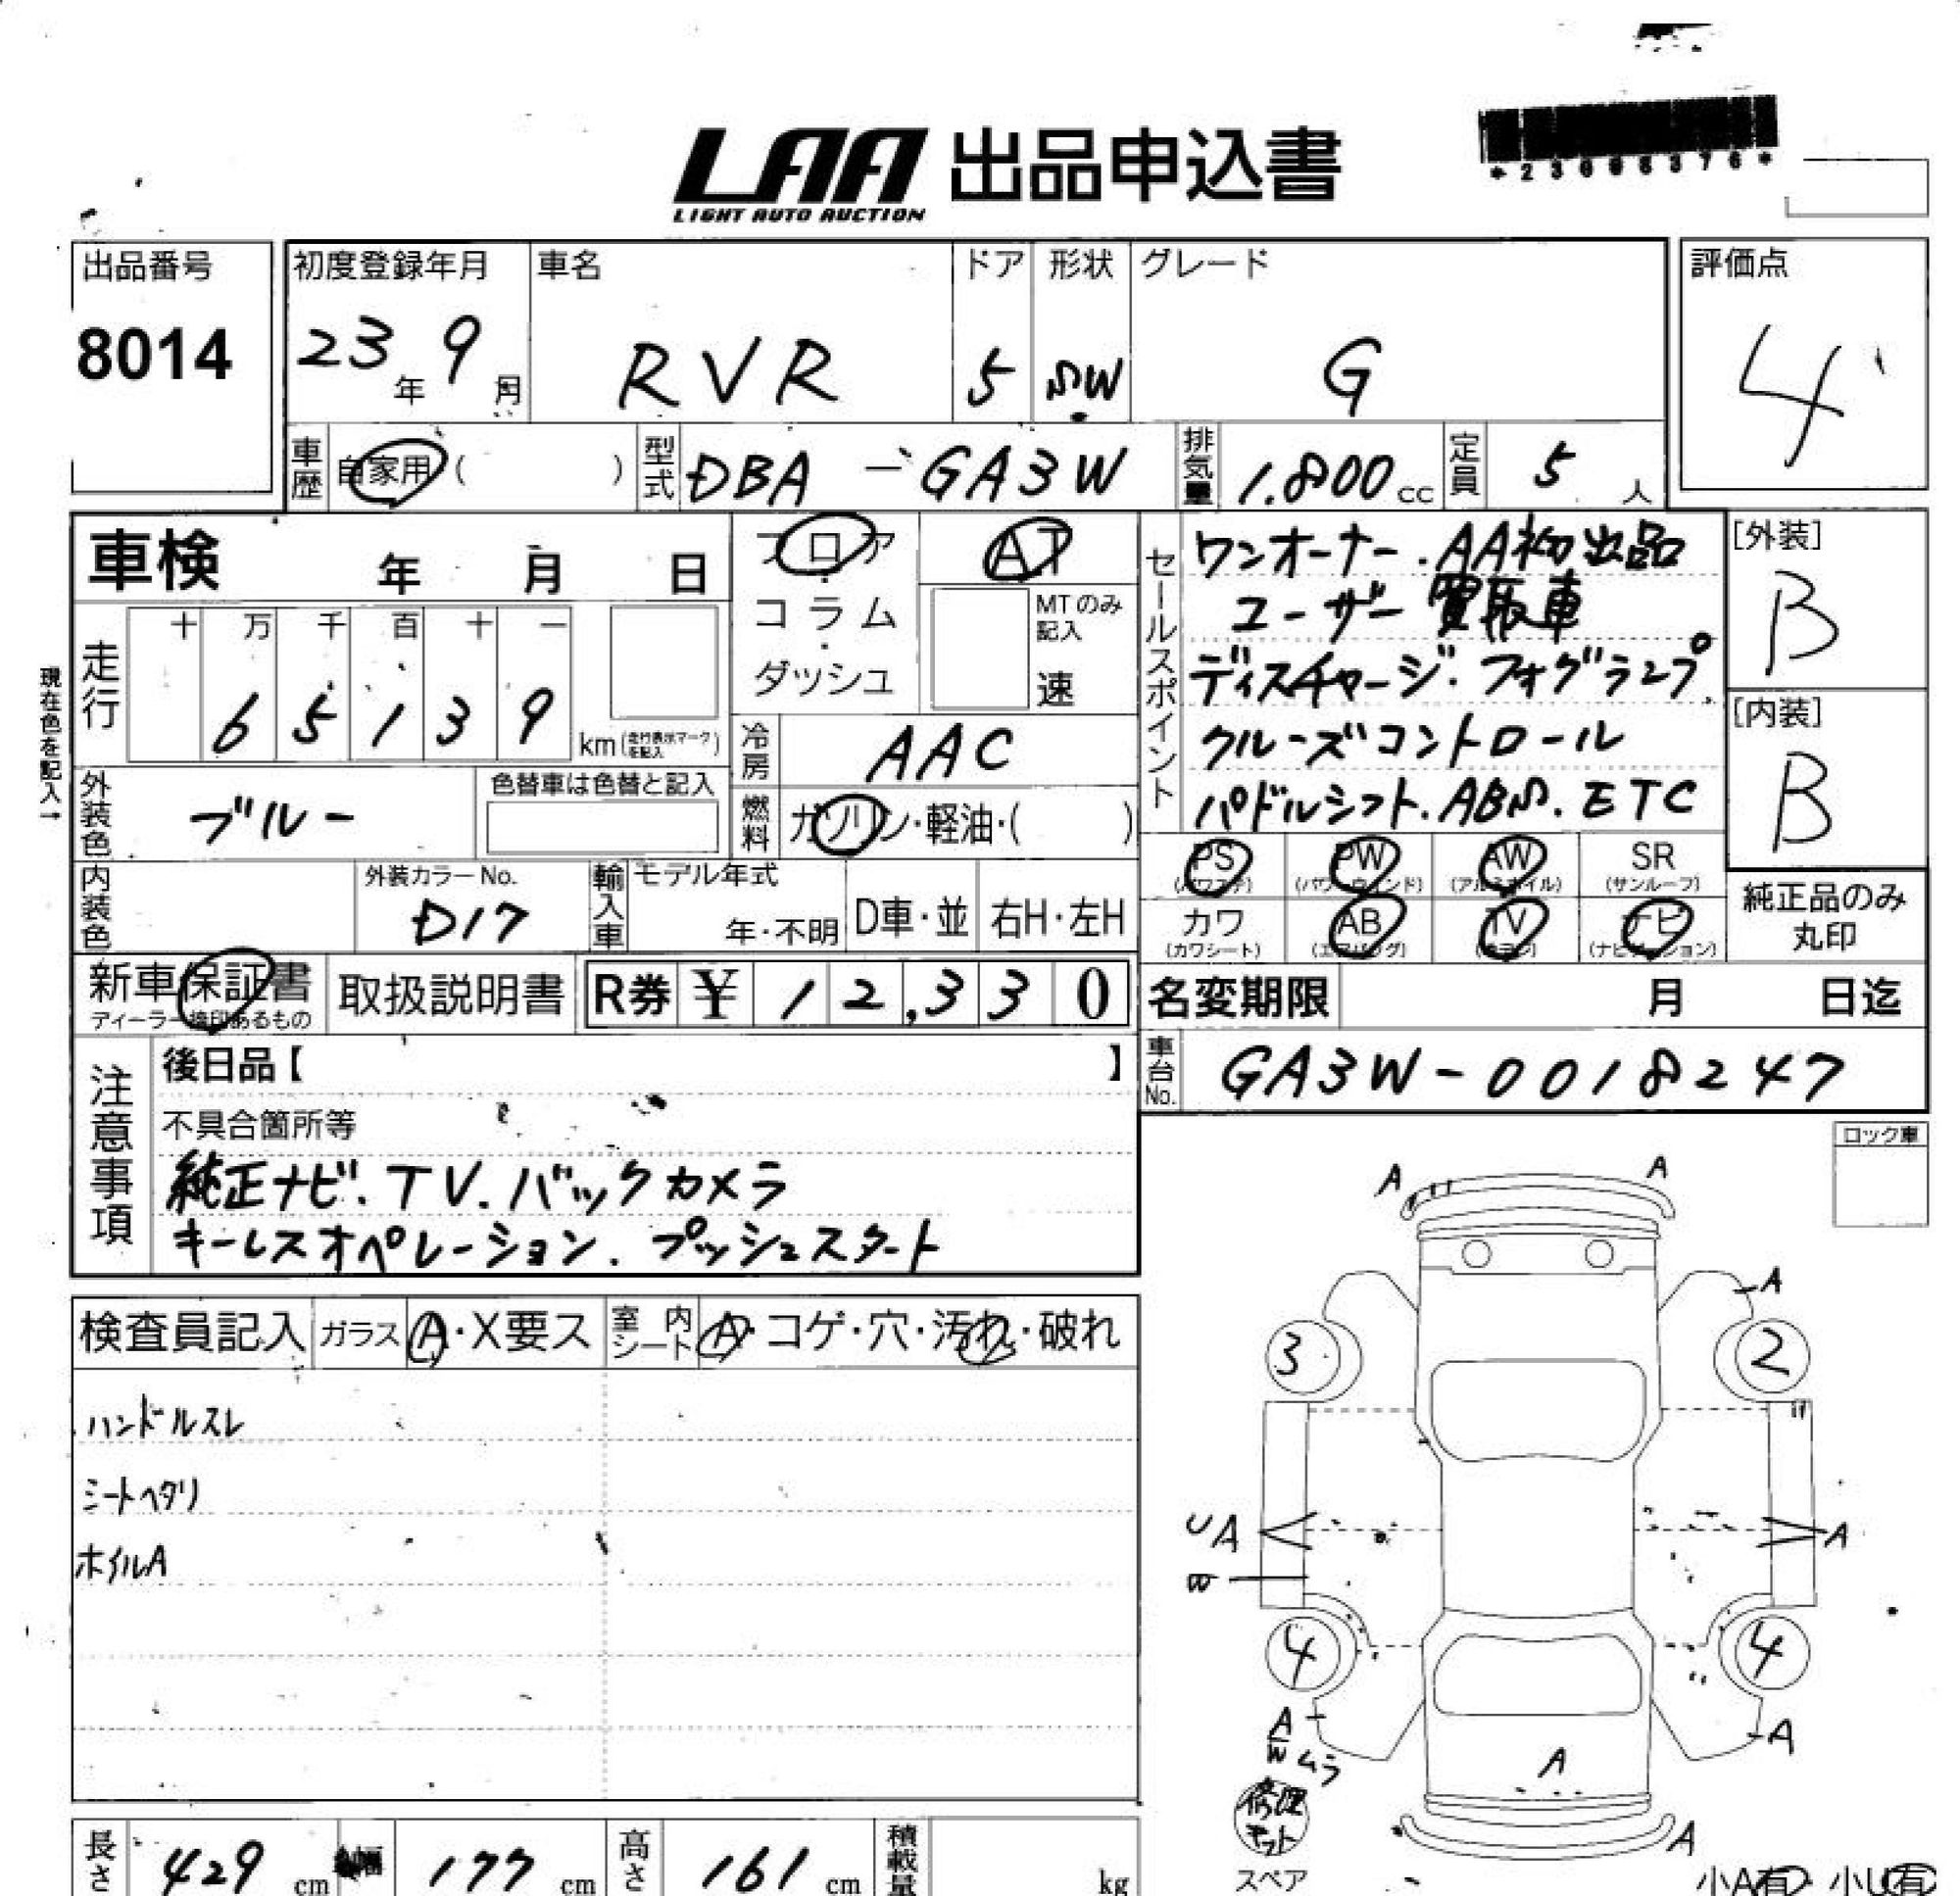 LAA 出品申込書
LIGHT AUTO AUCTION
出品番号
8014
初度登録年月
23年 9月
車名
RVR
ドア
5
形状
SW
グレード
G
評価点
4
車歴 自家用 ( )
型式 DBA-GA3W
排気量 1.800cc
定員 5人
車検 年 月 日
フロア
コラム
ダッシュ
AT
MTのみ記入
速
セールスポイント
ワンオーナー.AA初出品
ユーザー買取車
ディスチャージ.フォグランプ.
クルーズコントロール
パドルシフト.ABS.ETC
[外装]
B
[内装]
B
現在色を記入→
走行
十 万 千 百 十 一
6 5 1 3 9 km(走行表示マークを記入)
冷房 AAC
燃料 ガソリン・軽油・( )
外装色 ブルー
色替車は色替と記入
内装色
外装カラーNo.
D17
輸入車
モデル年式
年・不明
D車・並
右H・左H
PS (パワステ)
PW (パワーウィンド)
AW (アルミホイル)
SR (サンルーフ)
カワ (カワシート)
AB (エアバッグ)
TV (テレビ)
ナビ (ナビゲーション)
純正品のみ丸印
新車保証書
ディーラー捺印あるもの
取扱説明書
R券 ¥ 12,330
名変期限 月 日迄
車台No. GA3W-0018247
注意事項
後日品【 】
不具合箇所等
純正ナビ.TV.バックカメラ
キーレスオペレーション.プッシュスタート
ロック車
検査員記入
ガラス A・X要ス
室内シート A・コゲ・穴・汚れ・破れ
ハンドルスレ
シートヘタリ
ホイルA
A
A
A
3
2
UA
A
B
4
4
A
W ムラ
A
A
A
修理キット
スペア
小A有・小U有
長さ 429cm
幅 177cm
高さ 161cm
積載量 kg